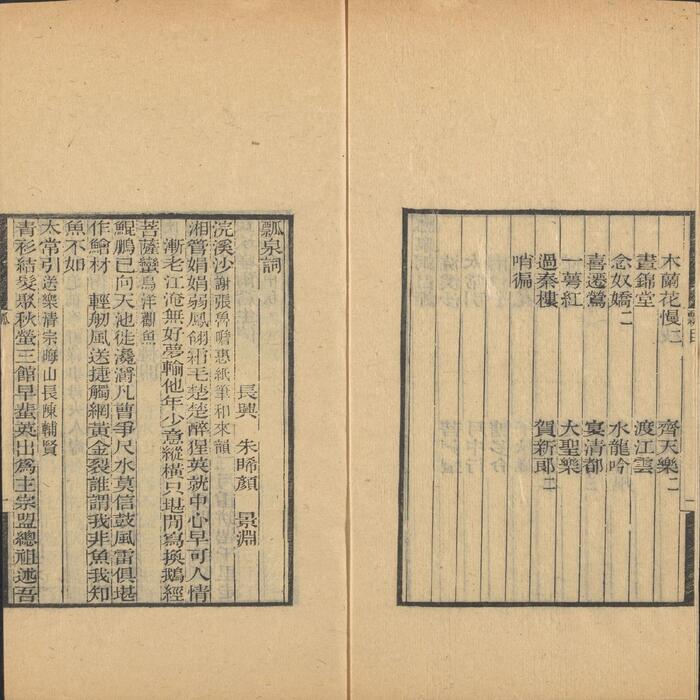 木蘭花慢二 齊天樂二
晝錦堂 渡江雲
念奴嬌二 水龍吟
喜遷鶯 宴清都
一萼紅 大聖樂
過秦樓 賀新郎二
哨徧
瓢泉詞
長興 朱晞顏 景淵
浣溪沙謝張魯瞻惠紙筆和來韻
湘管娟娟弱鳳翎霜毛楚楚醉猩英就中心早可人情
漸老江淹無好夢輸他年少意縱橫只堪閒寫換鵝經
菩薩蠻烏洋觀魚
鯤鵬已向天池徙瀺灂凡曹爭尺水莫信鼓風雷俱堪
作鱠材 輕舠風送捷觸網黃金裂誰謂我非魚我知
魚不如
太常引送樂清宗晦山長陳輔賢
青衫結髮聚秋螢三館早蜚英出爲主崇盟總祖述吾